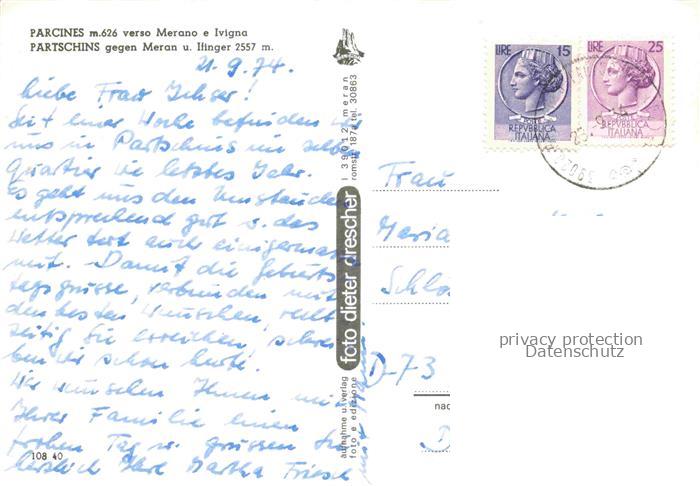 PARCINES m.626 verso Merano e Ivigna
PARTSCHINS gegen Meran u. Ifinger 2557 m.
21.9.74.
Liebe Frau
Seit einer Woche befinden wir
uns in Partschins im selben
Quartier wie letztes Jahr.
Es geht uns den Umständen
entsprechend gut u. das
Wetter tut auch einigermaßen
mit. Damit die Geburts
tagsgrüsse, verbunden mit
den besten Wünschen, recht
zeitig Sie erreichen, schrei
ben wir schon heute.
Wir wünschen Ihnen mit
Ihrer Familie einen
frohen Tag u. grüssen Sie
herzlich Ihre Martha Friesch
108 40
I 39012 meran
romstr. 187a tel. 30863
foto dieter drescher
aufnahme u. verlag
foto e edizione
LIRE 15
REPVBBLICA
ITALIANA
LIRE 25
REPVBBLICA
ITALIANA
Frau
Maria
D-73
nac
privacy protection
Datenschutz